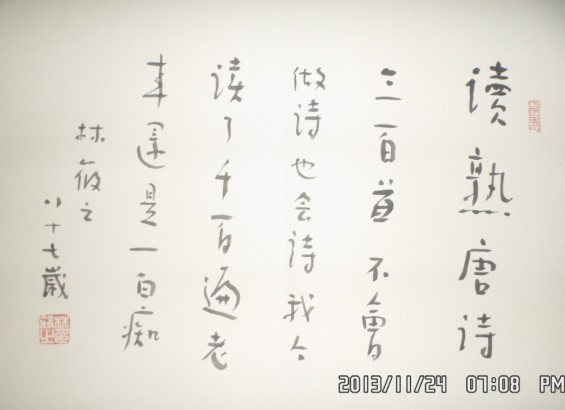 读熟唐诗
三百首不會
做诗也会诗我今
读了千百遍老
来還是一白痴
林筱之
八十七歲
2013/11/24 07:08 PM